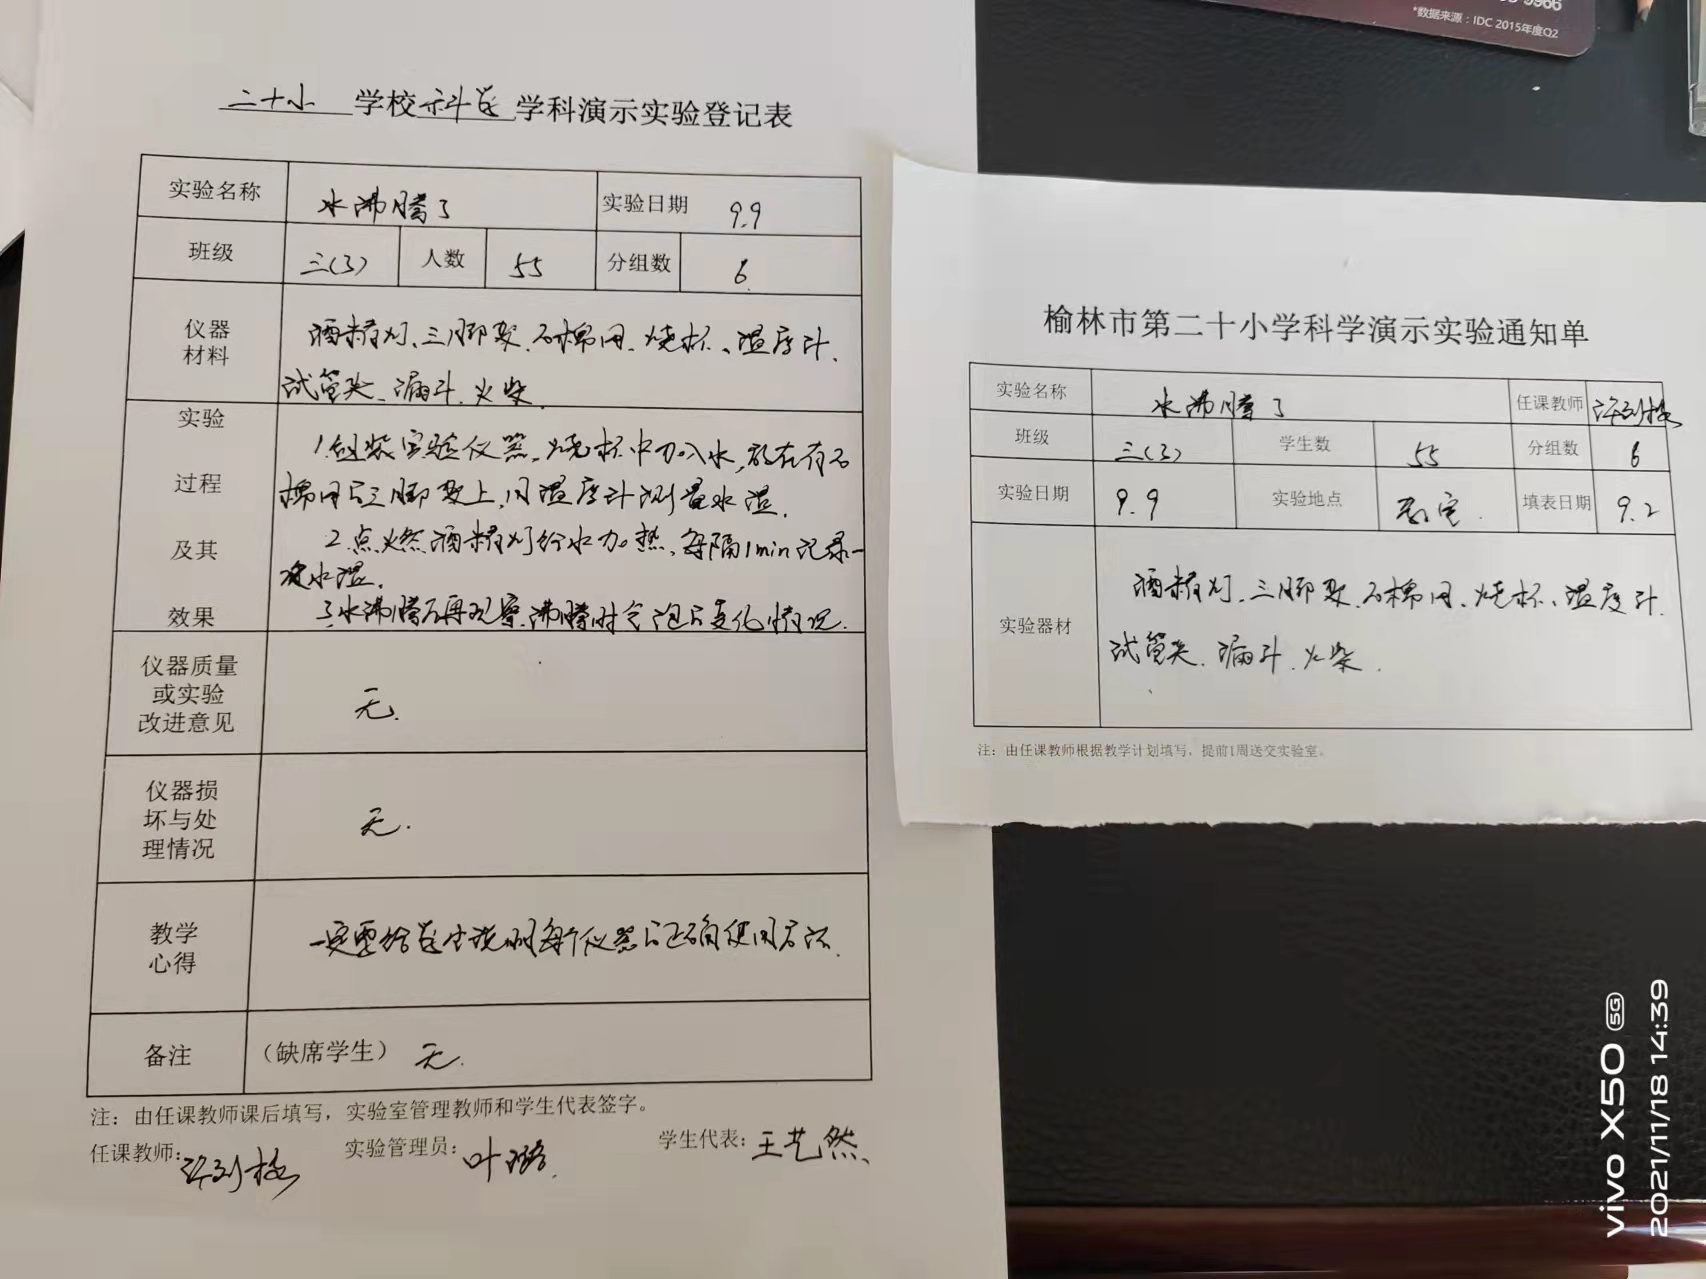 二十小 学校 科学 学科演示实验登记表
实验名称 水沸腾了 实验日期 9.9
班级 三(3) 人数 55 分组数 6
仪器材料 酒精灯、三脚架、石棉网、烧杯、温度计、
试管夹、漏斗、火柴
实验过程及其效果
1.组装实验仪器,烧杯中加入水,放在有石
棉网的三脚架上,用温度计测量水温.
2.点燃酒精灯给水加热,每隔1min记录一
次水温.
3.水沸腾后再观察沸腾时气泡的变化情况.
仪器质量或实验改进意见 无.
仪器损坏与处理情况 无.
教学心得 一定要给学生说明每个仪器的正确使用方法.
备注 (缺席学生) 无.
注:由任课教师课后填写,实验室管理教师和学生代表签字。
任课教师: 实验管理员:叶璐. 学生代表:王艺然
榆林市第二十小学科学演示实验通知单
实验名称 水沸腾了 任课教师
班级 三(3) 学生数 55 分组数 6
实验日期 9.9 实验地点 教室. 填表日期 9.2
实验器材 酒精灯、三脚架、石棉网、烧杯、温度计、
试管夹、漏斗、火柴.
注:由任课教师根据教学计划填写,提前1周送交实验室。
9966
*数据来源:IDC 2015年度Q2
vivo X50 5G
2021/11/18 14:39